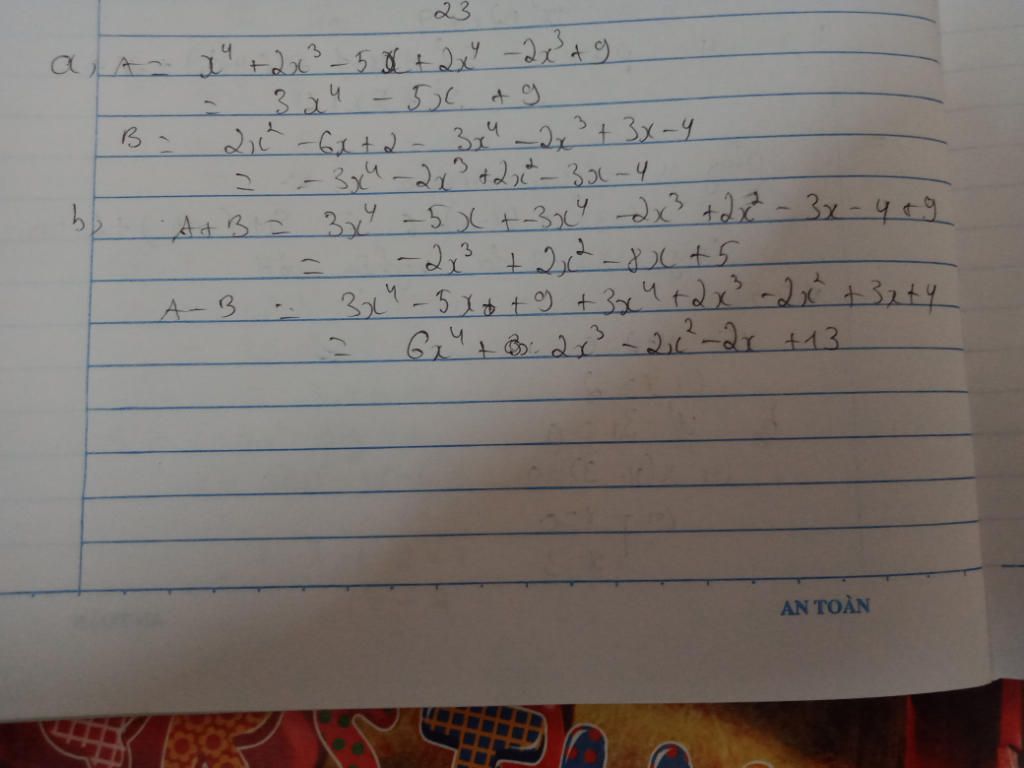 23
a, A = x⁴ + 2x³ - 5x + 2x⁴ - 2x³ + 9
= 3x⁴ - 5x + 9
B = 2x² - 6x + 2 - 3x⁴ - 2x³ + 3x - 4
= - 3x⁴ - 2x³ + 2x² - 3x - 4
b, A + B = 3x⁴ - 5x + -3x⁴ - 2x³ + 2x² - 3x - 4 + 9
= - 2x³ + 2x² - 8x + 5
A - B = 3x⁴ - 5x + 9 + 3x⁴ + 2x³ - 2x² + 3x + 4
= 6x⁴ + 2x³ - 2x² - 2x + 13
AN TOÀN